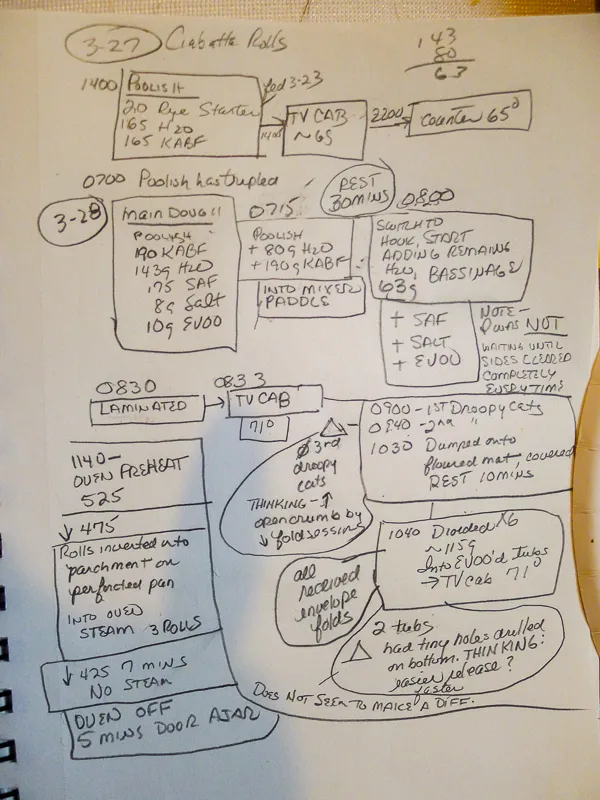 3-27 Ciabatta Rolls
143
80
63
1400
POOLISH
20 Rye Starter
165 H2O
165 KABF
fed 3-23
1400
TV CAB
~65
2200
Counter 65°
0700 Poolish has tripled
3-28
Main Dough
Poolish
190 KABF
143g H2O
.175 SAF
8g Salt
10g EVOO
0715
POOLISH
+ 80g H2O
+190g KABF
INTO MIXER
PADDLE
REST
30MINS
0800
SWITCH TO
HOOK, START
ADDING REMAING
H2O, BASSINAGE
63g
+ SAF
+ SALT
+ EVOO
NOTE-
I WAS NOT
WAITING UNTIL
SIDES CLEARED
COMPLETELY
EVERYTIME
0830
LAMINATED
0833
TV CAB
71°
0900 - 1ST Droopy Cats
0940 - 2nd "
1030 Dumped onto
floured mat, covered
REST 10 MINS
△
Ø 3rd
droopy
cats
THINKING - ↑
open crumb by
↓ fold sessions
1040 Divided X6
~115g
Into EVOO'd Tubs
→ TV cab 71°
all
received
envelope
folds
2 tubs
△ had tiny holes drilled
on bottom. THINKING:
easier release?
faster
DOES NOT SEEM TO MAKE A DIFF.
1140-
OVEN PREHEAT
525
↓ 475
Rolls inverted onto
parchment on
perforated pan
INTO OVEN
STEAM 3 ROLLS
↓ 425 7 MINS
NO STEAM
OVEN OFF
5 MINS DOOR AJAR